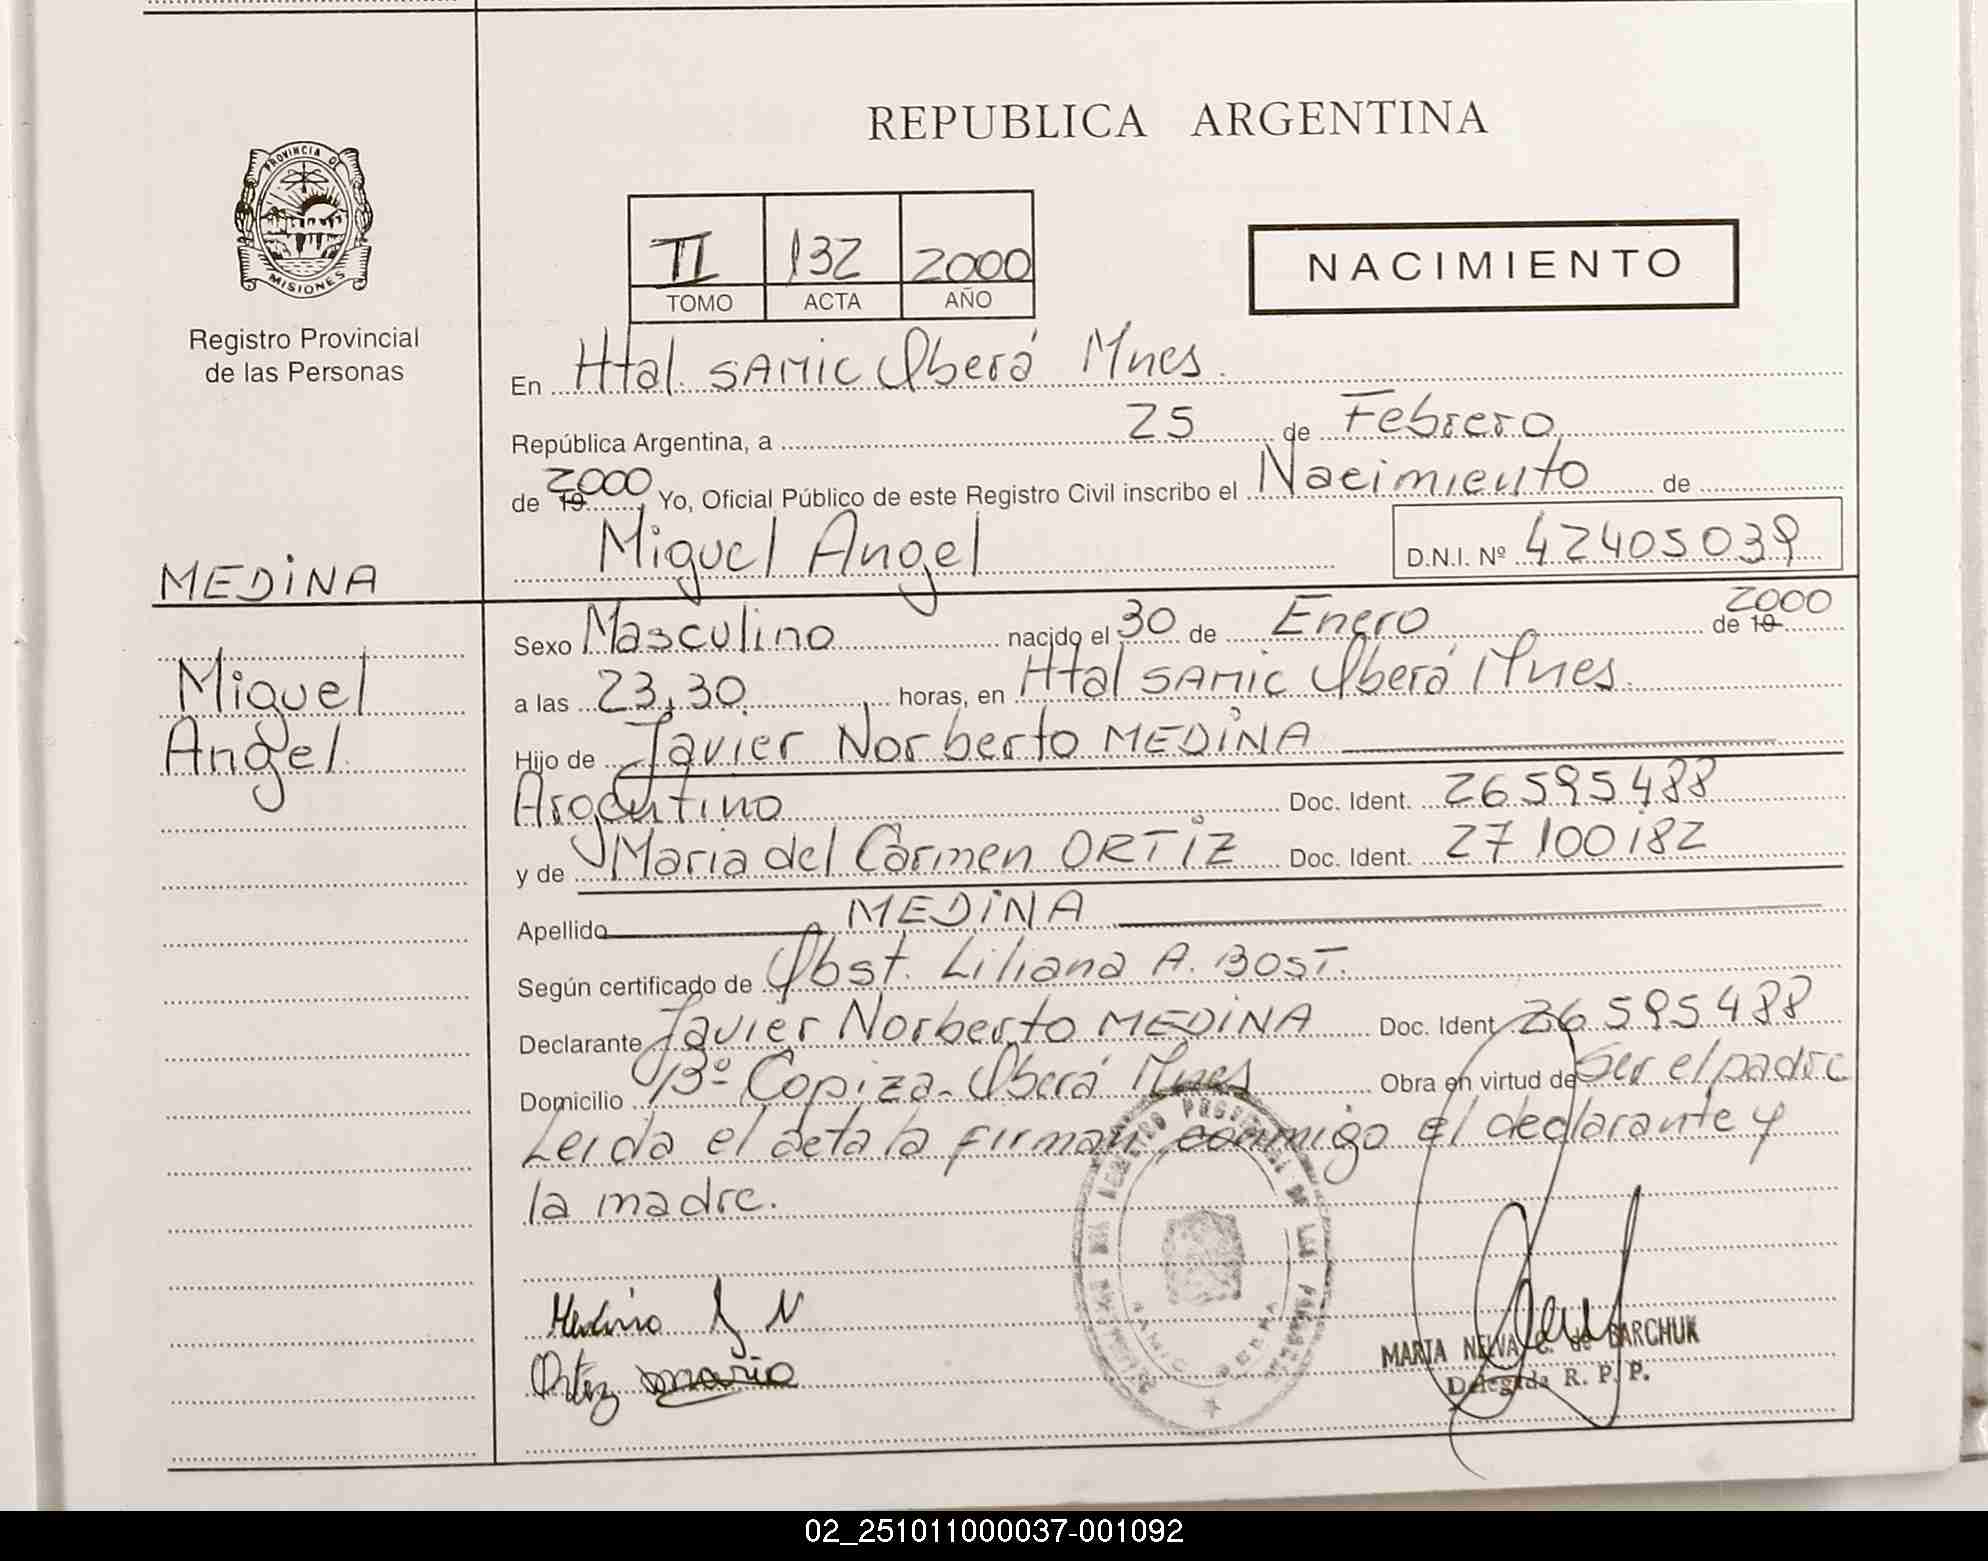 REPUBLICA ARGENTINA
PROVINCIA DE
MISIONES
Registro Provincial
de las Personas
II 132 2000
TOMO ACTA AÑO
NACIMIENTO
En Htal. SAMIC Oberá Mnes.
República Argentina, a 25 de Febrero
de 19 2000 Yo, Oficial Público de este Registro Civil inscribo el Nacimiento de
Miguel Angel D.N.I. Nº 42405039
MEDINA
Miguel
Angel.
Sexo Masculino nacido el 30 de Enero de 19 2000
a las 23,30. horas, en Htal SAMIC Oberá Mnes.
Hijo de Javier Norberto MEDINA
Argentino Doc. Ident. 26595488
y de Maria del Carmen ORTIZ Doc. Ident. 27100182
Apellido MEDINA
Según certificado de Obst. Liliana A. BOST.
Declarante Javier Norberto MEDINA Doc. Ident 26595488
Domicilio Bº Copiza - Oberá Mnes Obra en virtud de Ser el padre
Leida el acta la firman conmigo el declarante y
la madre.
Medina J N
Ortiz maria
MARTA NELVA C. de BARCHUK
Delegada R. P. P.
02_251011000037-001092